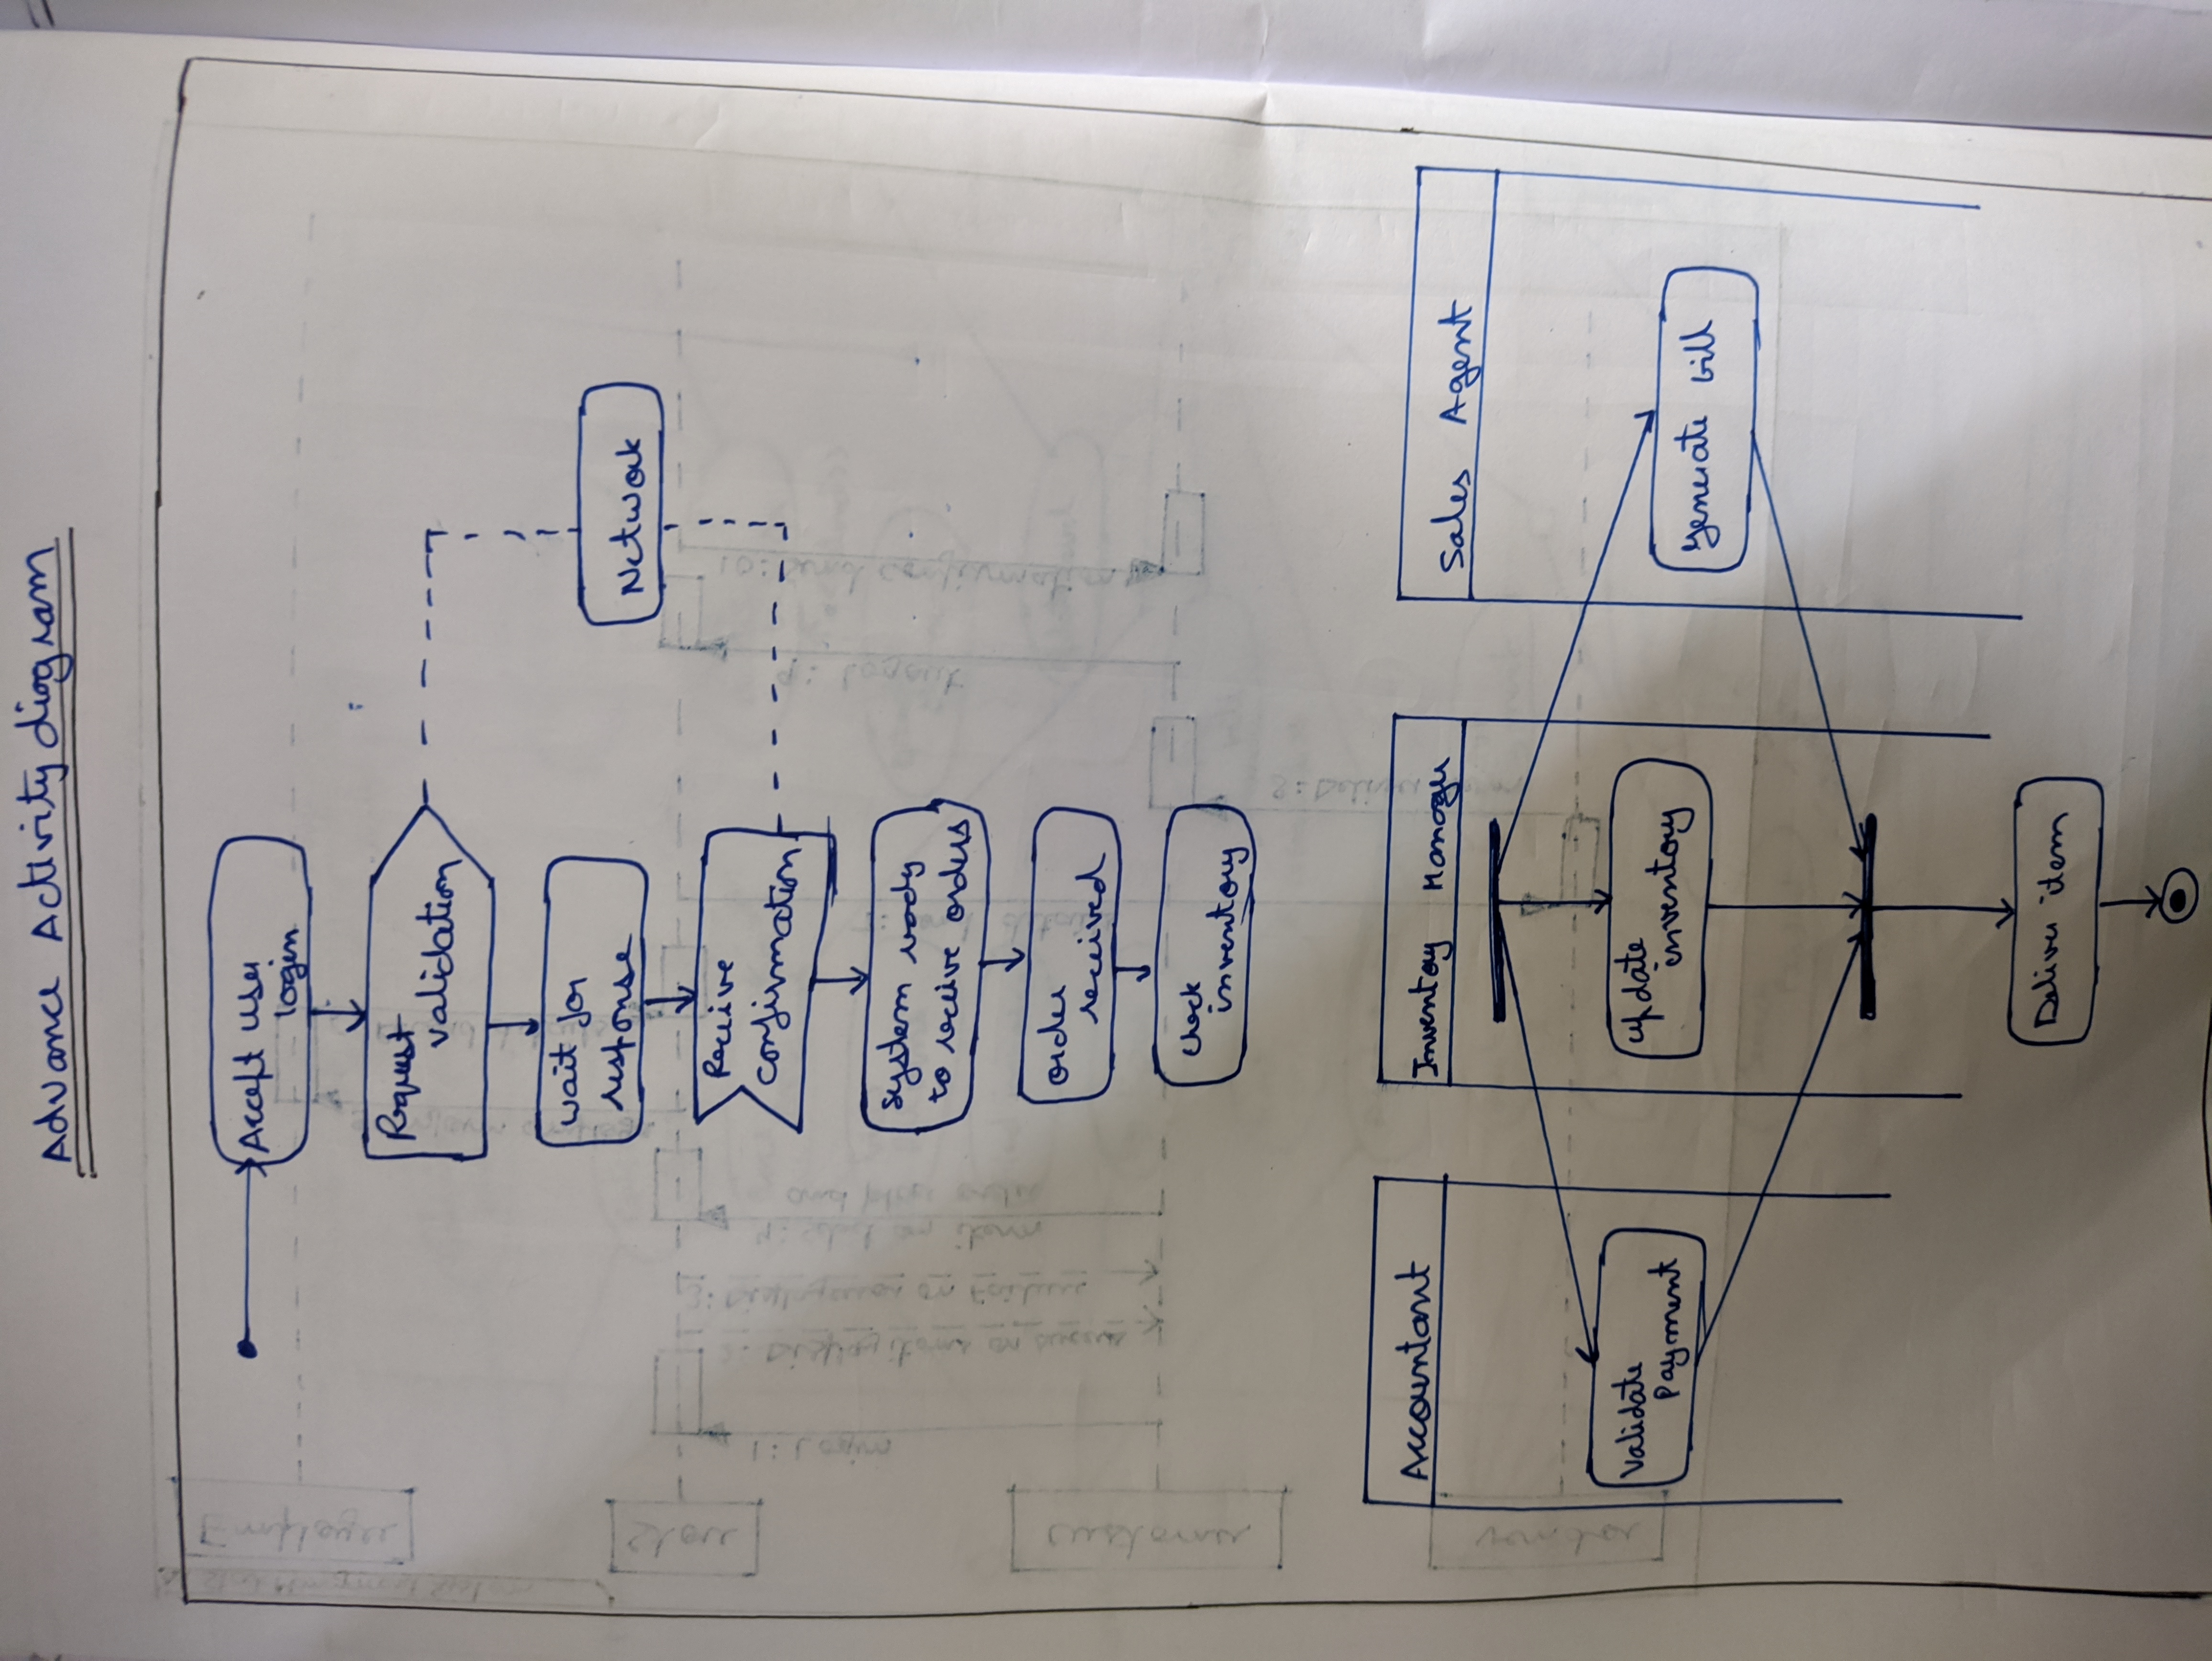 Advance Activity diagram
Accept user
login
Request
validation
wait for
response
Network
Receive
confirmation
system ready
to receive orders
order
received
check
inventory
Accountant
Inventory Manager
Sales Agent
Validate
Payment
update
inventory
generate bill
Deliver item